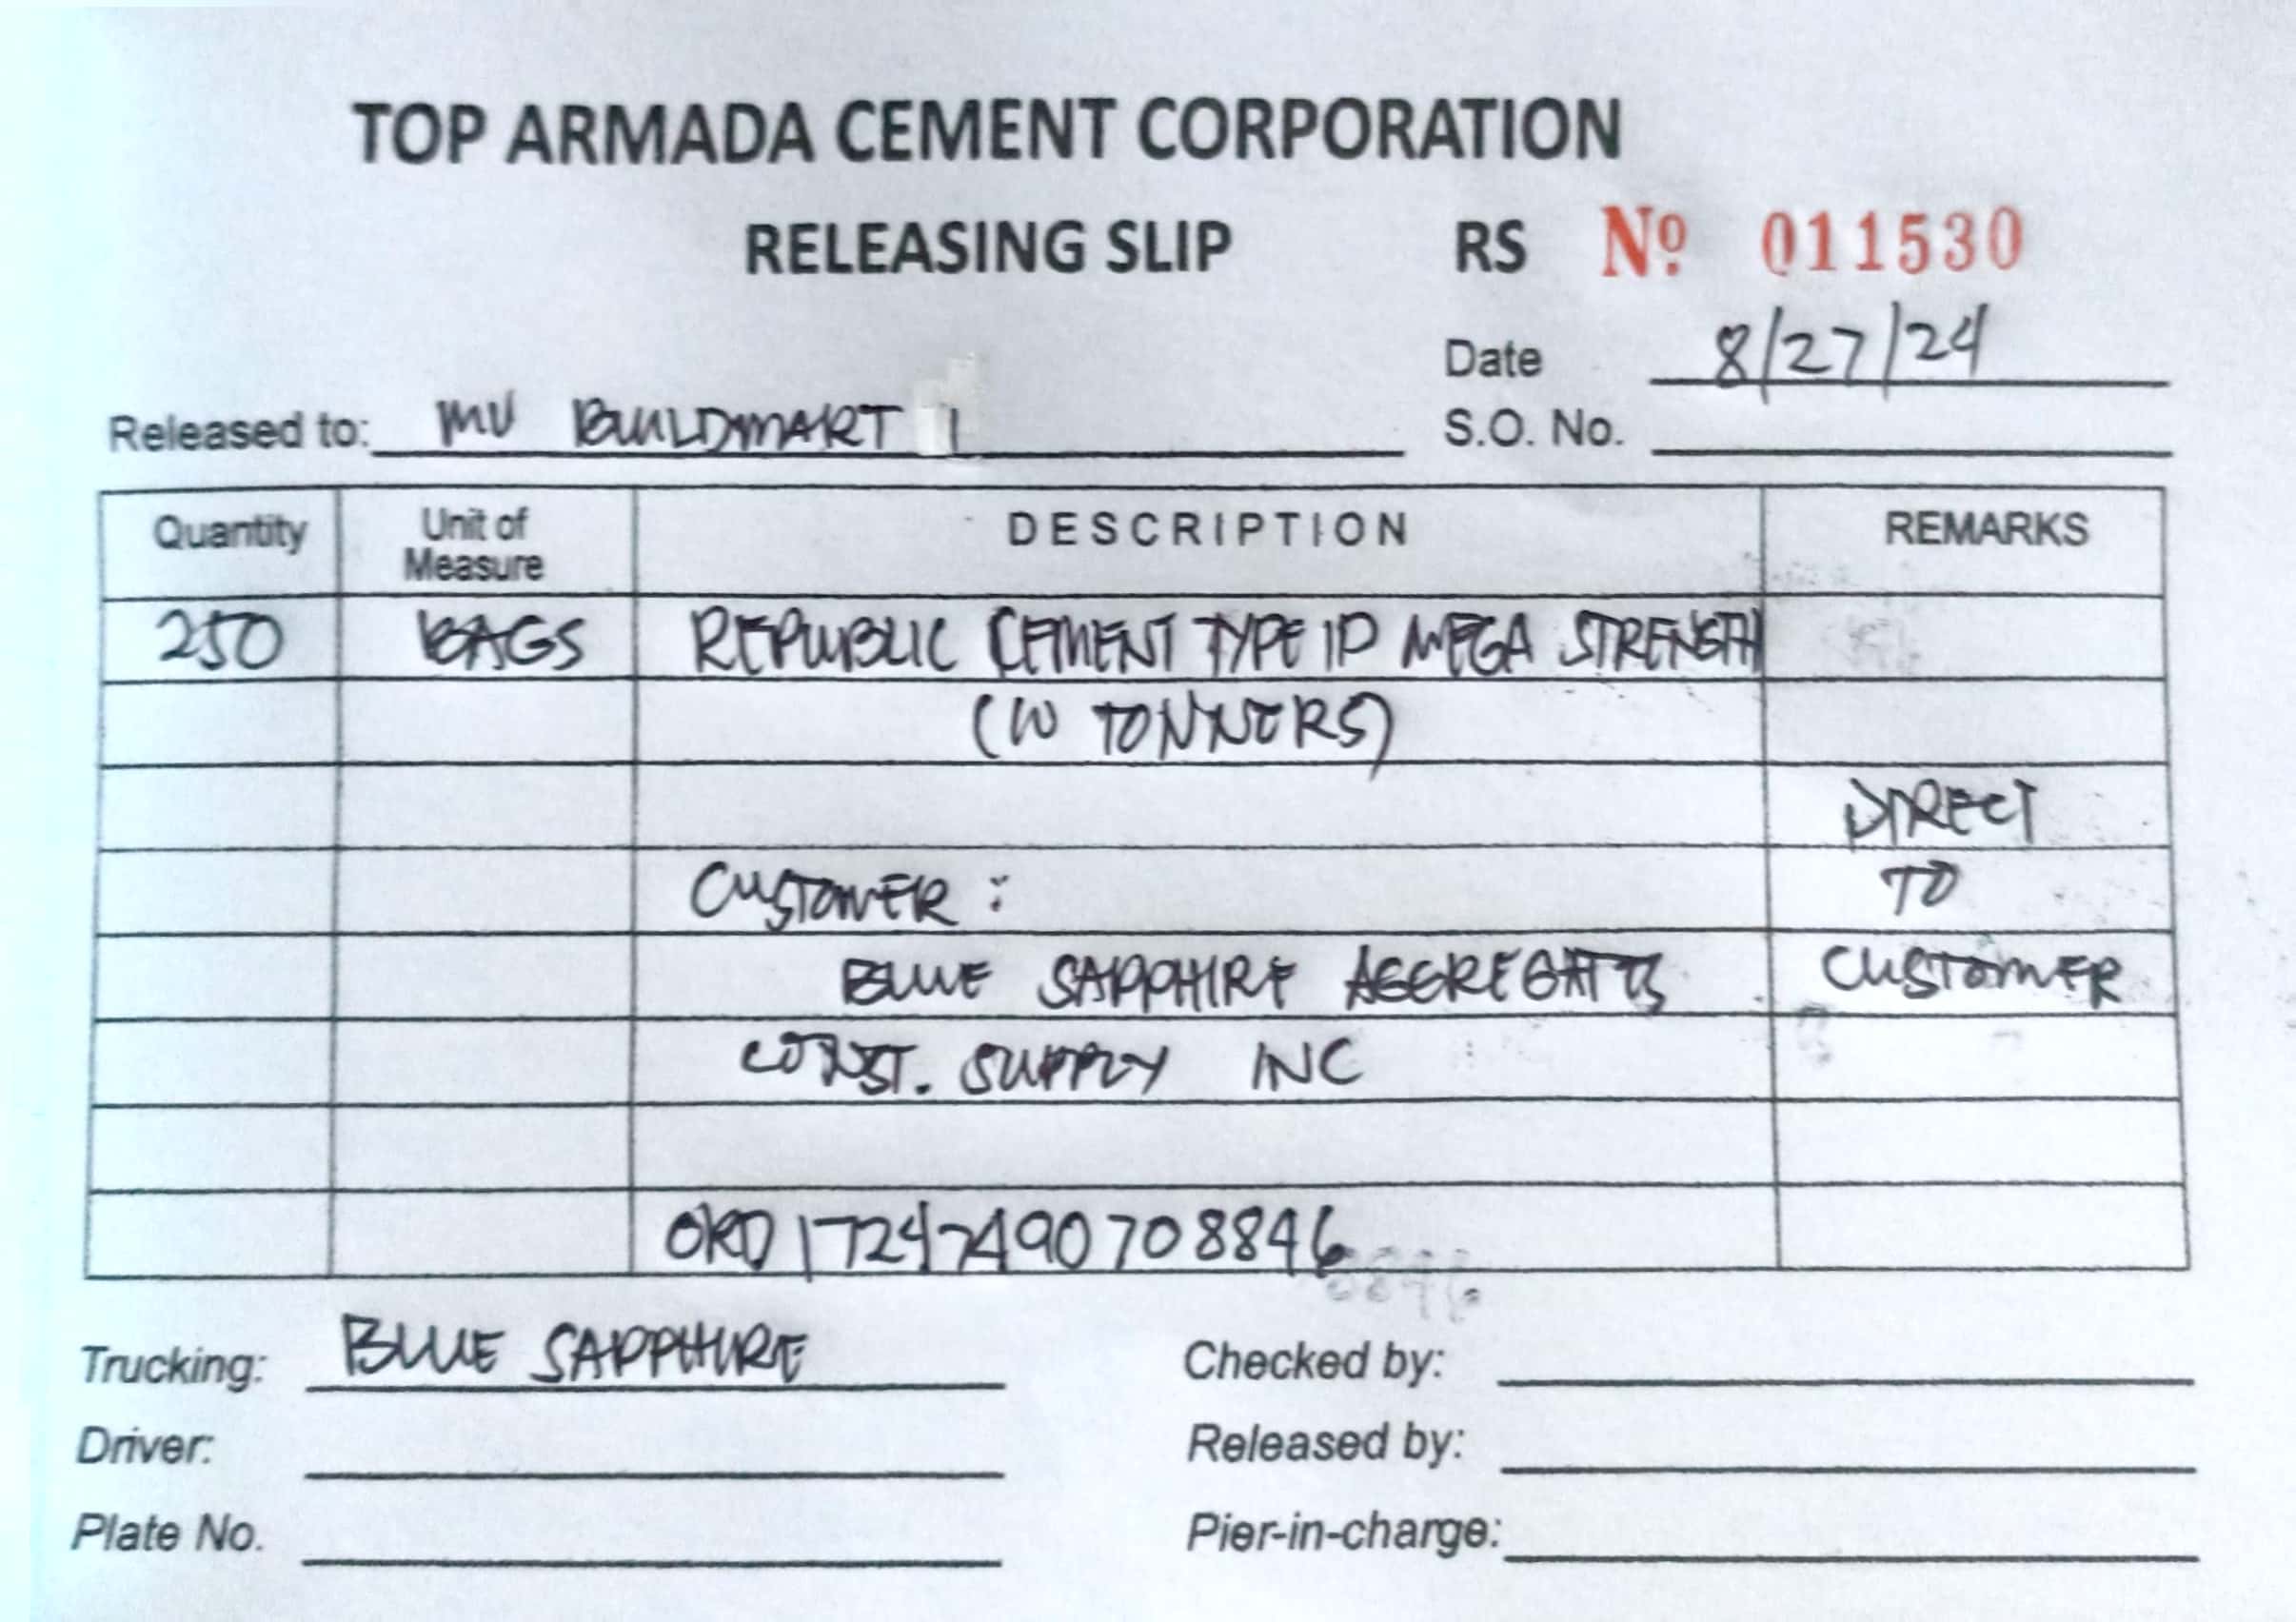 TOP ARMADA CEMENT CORPORATION
RELEASING SLIP RS Nº 011530
Date 8/27/24
Released to: MV BUILDMART 1
S.O. No.
Quantity Unit of Measure DESCRIPTION REMARKS
250 BAGS REPUBLIC CEMENT TYPE 1P MEGA STRENGTH
(10 TONNERS)
DIRECT
CUSTOMER : TO
BLUE SAPPHIRE AGGREGATES CUSTOMER
CONST. SUPPLY INC
ORD 1724749070 8846
Trucking: BLUE SAPPHIRE Checked by:
Driver: Released by:
Plate No. Pier-in-charge: